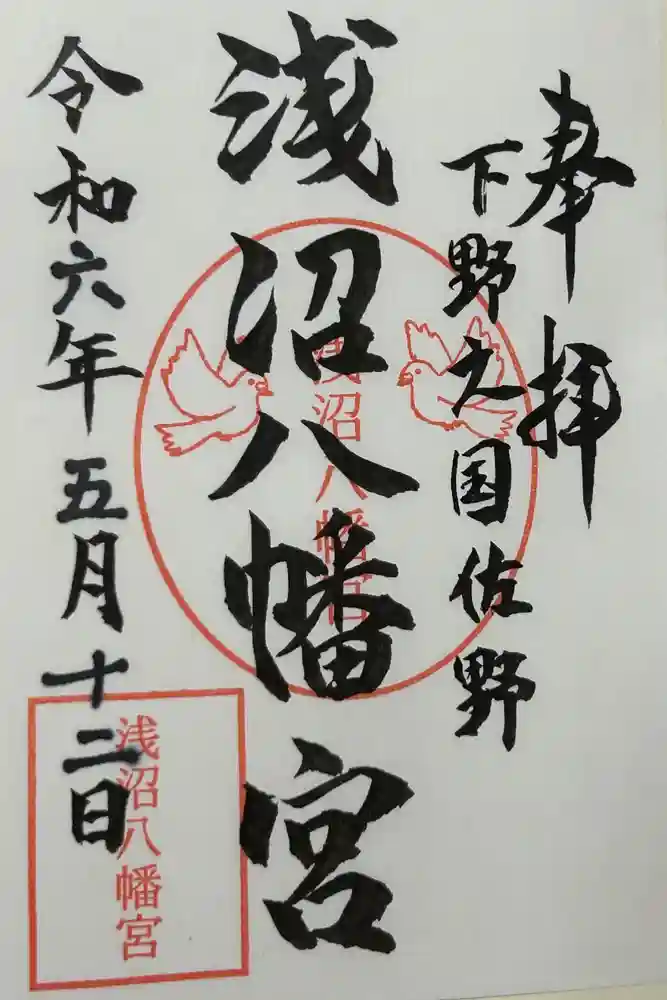 奉拝
下野之国佐野
浅沼八幡宮
浅沼八幡宮
令和六年五月十二日
浅沼八幡宮